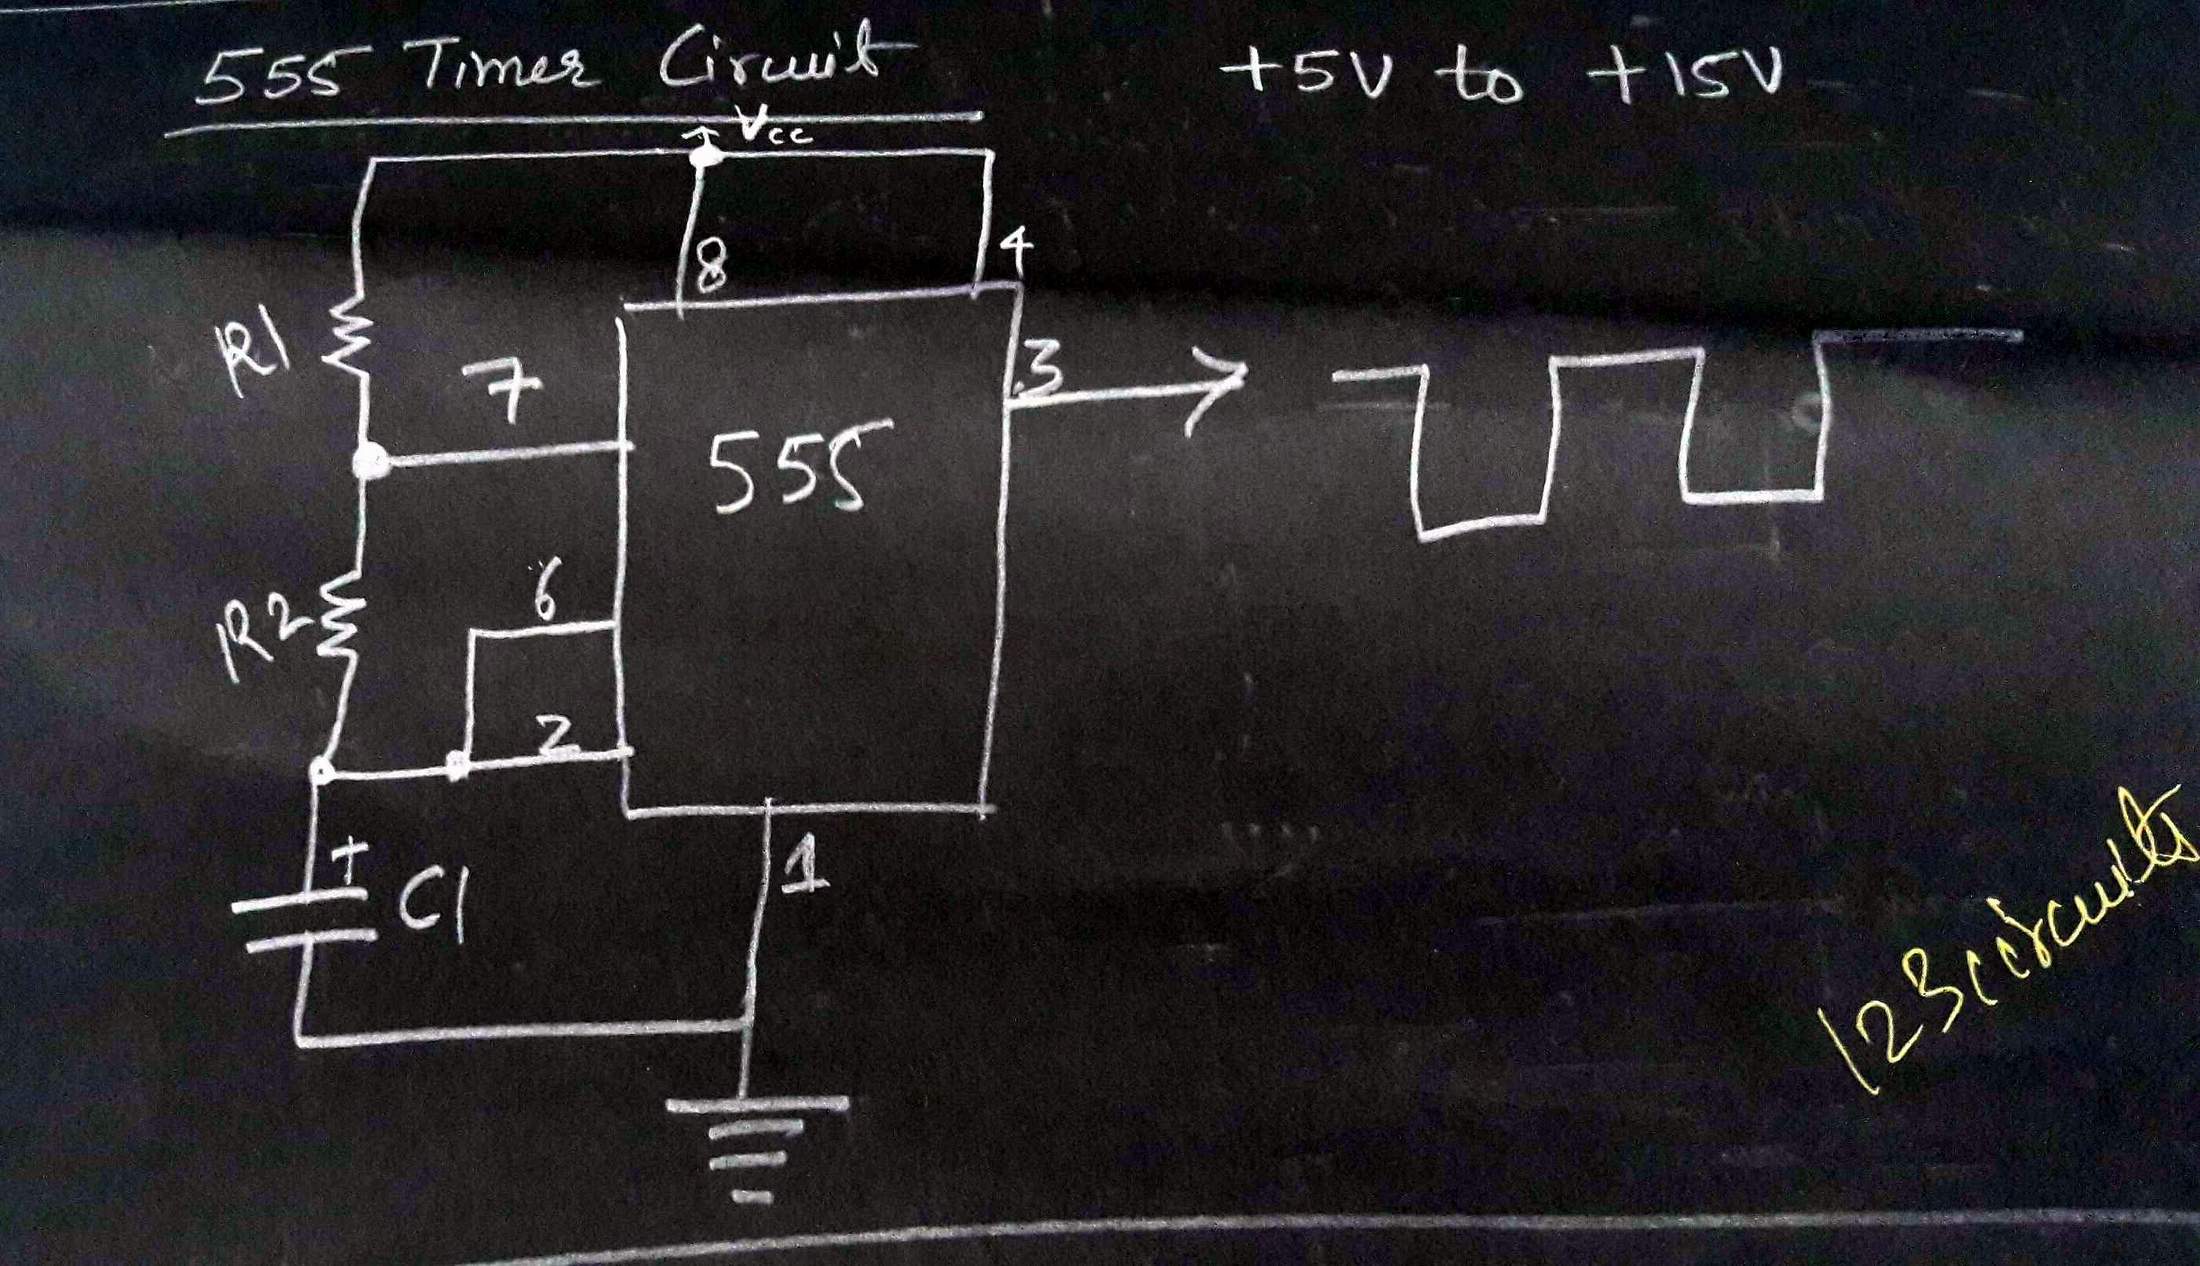 555 Timer Circuit
+5V to +15V
Vcc
8
4
R1
7
3
555
R2
6
2
+
C1
1
123circuits